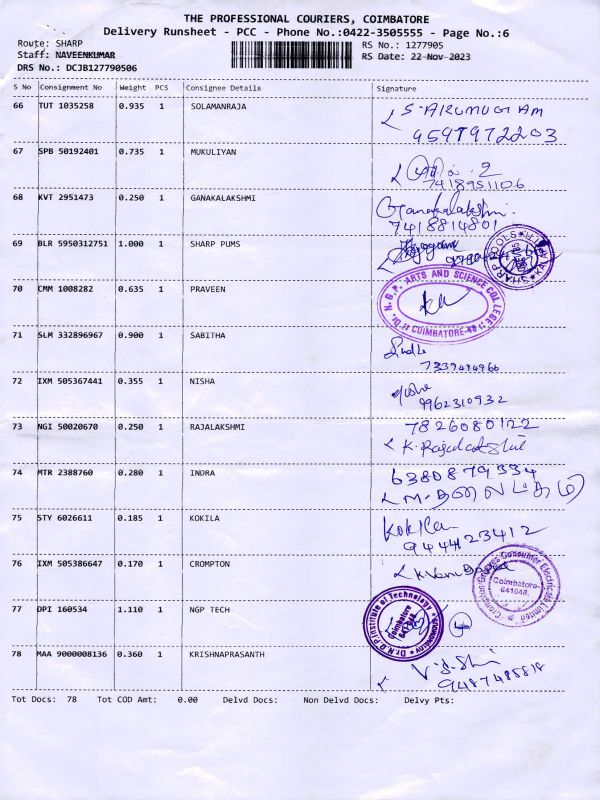 THE PROFESSIONAL COURIERS, COIMBATORE
Delivery Runsheet - PCC - Phone No.:0422-3505555 - Page No.:6
Route: SHARP
RS No.: 1277905
Staff: NAVEENKUMAR
RS Date: 22 Nov 2023
DRS No.: DCJB127790506
S No Consignment No Weight PCS Consignee Details Signature
66 TUT 1035258 0.935 1 SOLAMANRAJA
S. ARUMUGAM
4597972203
67 SPB 50192401 0.735 1 MUKULIYAN
7418951106
68 KVT 2951473 0.250 1 GANAKALAKSHMI
Ganakalakshmi
7418814801
69 BLR 5950312751 1.000 1 SHARP PUMS
70 CMM 1008282 0.635 1 PRAVEEN
Dr. N. G. P. ARTS AND SCIENCE COLLEGE
COIMBATORE-48
71 SLM 332896967 0.900 1 SABITHA
7339494966
72 IXM 505367441 0.355 1 NISHA
9962310932
73 NGI 50020670 0.250 1 RAJALAKSHMI
7826080122
K. Rajalakshmi
74 MTR 2388760 0.280 1 INDRA
6380879334
75 STY 6026611 0.185 1 KOKILA
Kokila
9444123412
76 IXM 505386647 0.170 1 CROMPTON
Crompton Greaves Consumer Electricals Limited
Coimbatore-
641048.
77 DPI 160534 1.110 1 NGP TECH
Dr. N.G.P. Institute of Technology
Coimbatore
641 048
78 MAA 9000008136 0.360 1 KRISHNAPRASANTH
9487485818
Tot Docs: 78 Tot COD Amt: 0.00 Delvd Docs: Non Delvd Docs: Delvy Pts: